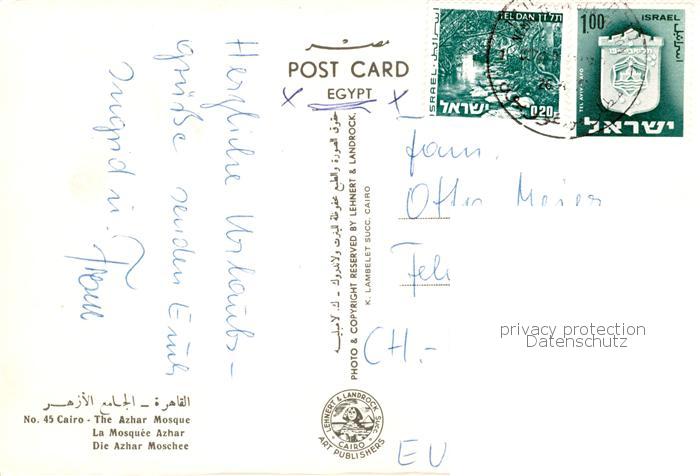 Herzliche Urlaubs-
grüße senden Euch
Ingrid u.
مصر
POST CARD
EGYPT
حقوق الصورة والطبع محفوظة للينرت ولاندروك - ك. لامبليه
PHOTO & COPYRIGHT RESERVED BY LEHNERT & LANDROCK
K. LAMBELET SUCC. CAIRO
TEL DAN תל דן
ISRAEL اسرائيل
ישראל 0.20
1.00 ISRAEL
اسرائيل
TEL AVIV-YAFO
ישראל
Fam.
Otto Meier
CH.-
EU
privacy protection
Datenschutz
القاهرة - الجامع الأزهر
No. 45 Cairo - The Azhar Mosque
La Mosquée Azhar
Die Azhar Moschee
LEHNERT & LANDROCK SUCC.
CAIRO
ART PUBLISHERS